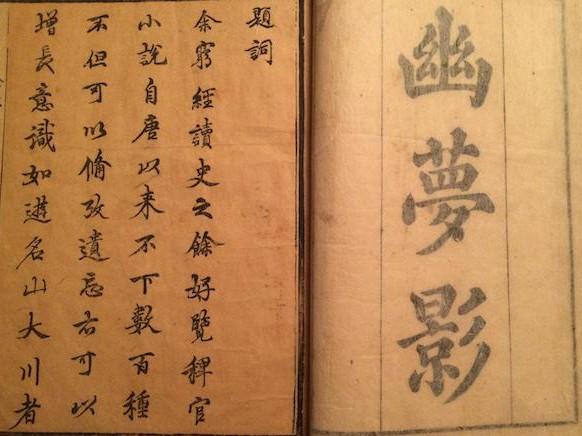 幽夢影
題詞
余窮經讀史之餘好覽稗官
小說自唐以来不下數百種
不但可以備攷遺忘亦可以
增長意識如遊名山大川者